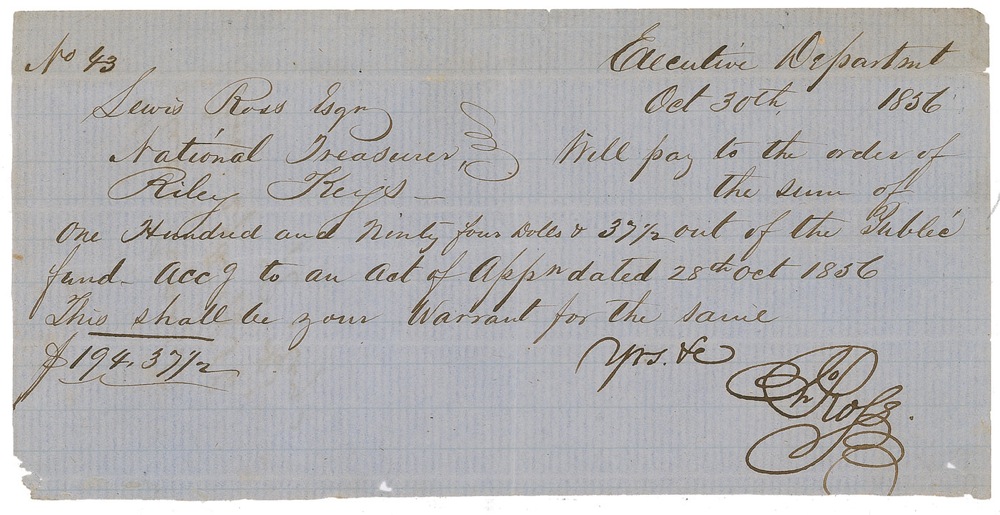 No 43
Executive Departmt
Lewis Ross Esqr
Oct 30th, 1856
National Treasurer, Will pay to the order of
Riley Keys — the sum of
One Hundred and Ninty four Dolls & 37 1/2 out of the Public
fund — Accg to an Act of Appn dated 28th Oct 1856
This shall be your Warrant for the same
$194,37 1/2
Yrs. &c
Jno Ross.